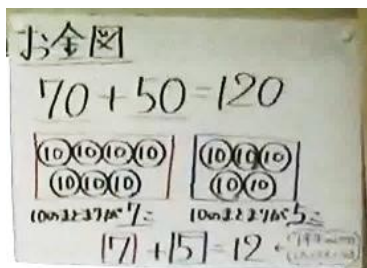 お金図
70+50=120
10 10 10 10 10 10 10
10 10 10 10 10
10のまとまりが7こ 10のまとまりが5こ
7+5=12